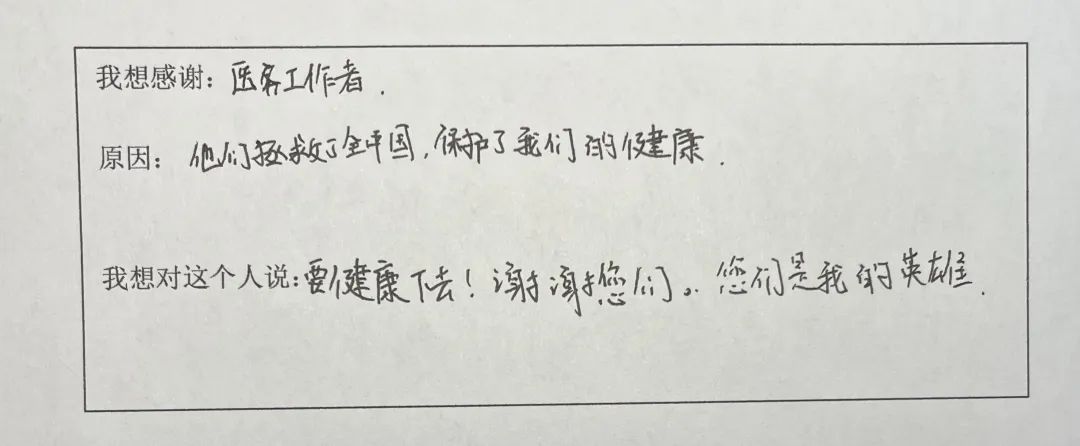 我想感谢：医务工作者.
原因：他们拯救了全中国，保护了我们的健康.
我想对这个人说：要健康下去！谢谢您们。您们是我的英雄.